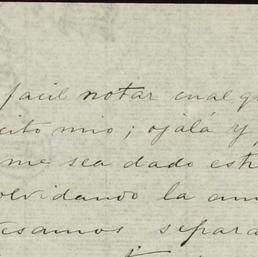 facil notar cual qu
cito mio; ojálá y
me sea dado estr
olvidando la am
esamos separa